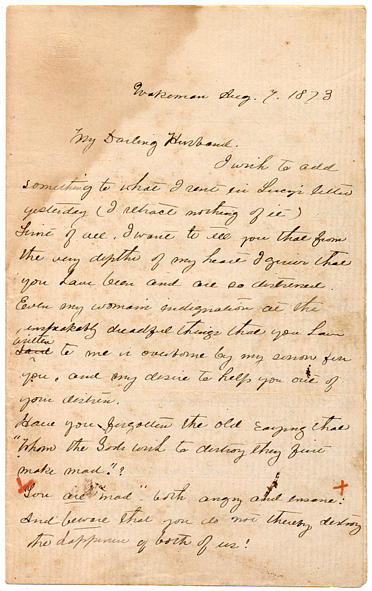 Wakeman Aug. 7. 1873
My Darling Husband.
I wish to add
something to what I sent in Lucy's letter
yesterday (I retract nothing of it)
First of all, I want to tell you that from
the very depths of my heart I grieve that
you have been and are so distressed.
Even my womans indignation at the
unspeakably dreadful things that you have
written
said to me is overcome by my sorrow for
you, and my desire to help you out of
your distress.
Have you forgotten the old saying that
"Whom the Gods wish to destroy they first
make mad."?
You are "mad" both angry and insane:
And beware that you do not thereby destroy
the happiness of both of us!